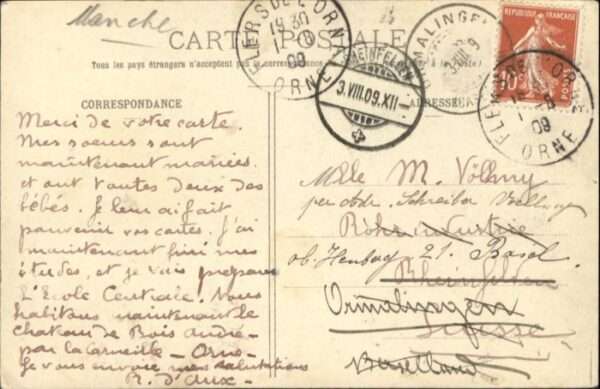 Manche
CARTE POSTALE
Tous les pays étrangers n'acceptent pas la correspondance
CORRESPONDANCE
ADRESSE
FLERS DE L'ORNE
19 30
09
ORNE
RHEINFELDEN
3.VIII.09.XII
ORMALINGEN
RÉPUBLIQUE FRANÇAISE
10c
POSTES
FLERS DE L'ORNE
09
ORNE
Merci de votre carte.
Mes soeurs sont
maintenant mariées
et ont toutes deux des
bébés. Je leur ai fait
parvenir vos cartes. J'ai
maintenant fini mes
études, et je vais préparer
l'Ecole Centrale. Nous
habitons maintenant le
chateau de Bois André
par la Carneille - Orne -
Je vous envoie mes salutations
R. d'Aux -
Mlle M. Vollmy
per adr. Schreiber Vollmy
21. Basel
Rheinfelden
Ormalingen
Suisse
Baselland